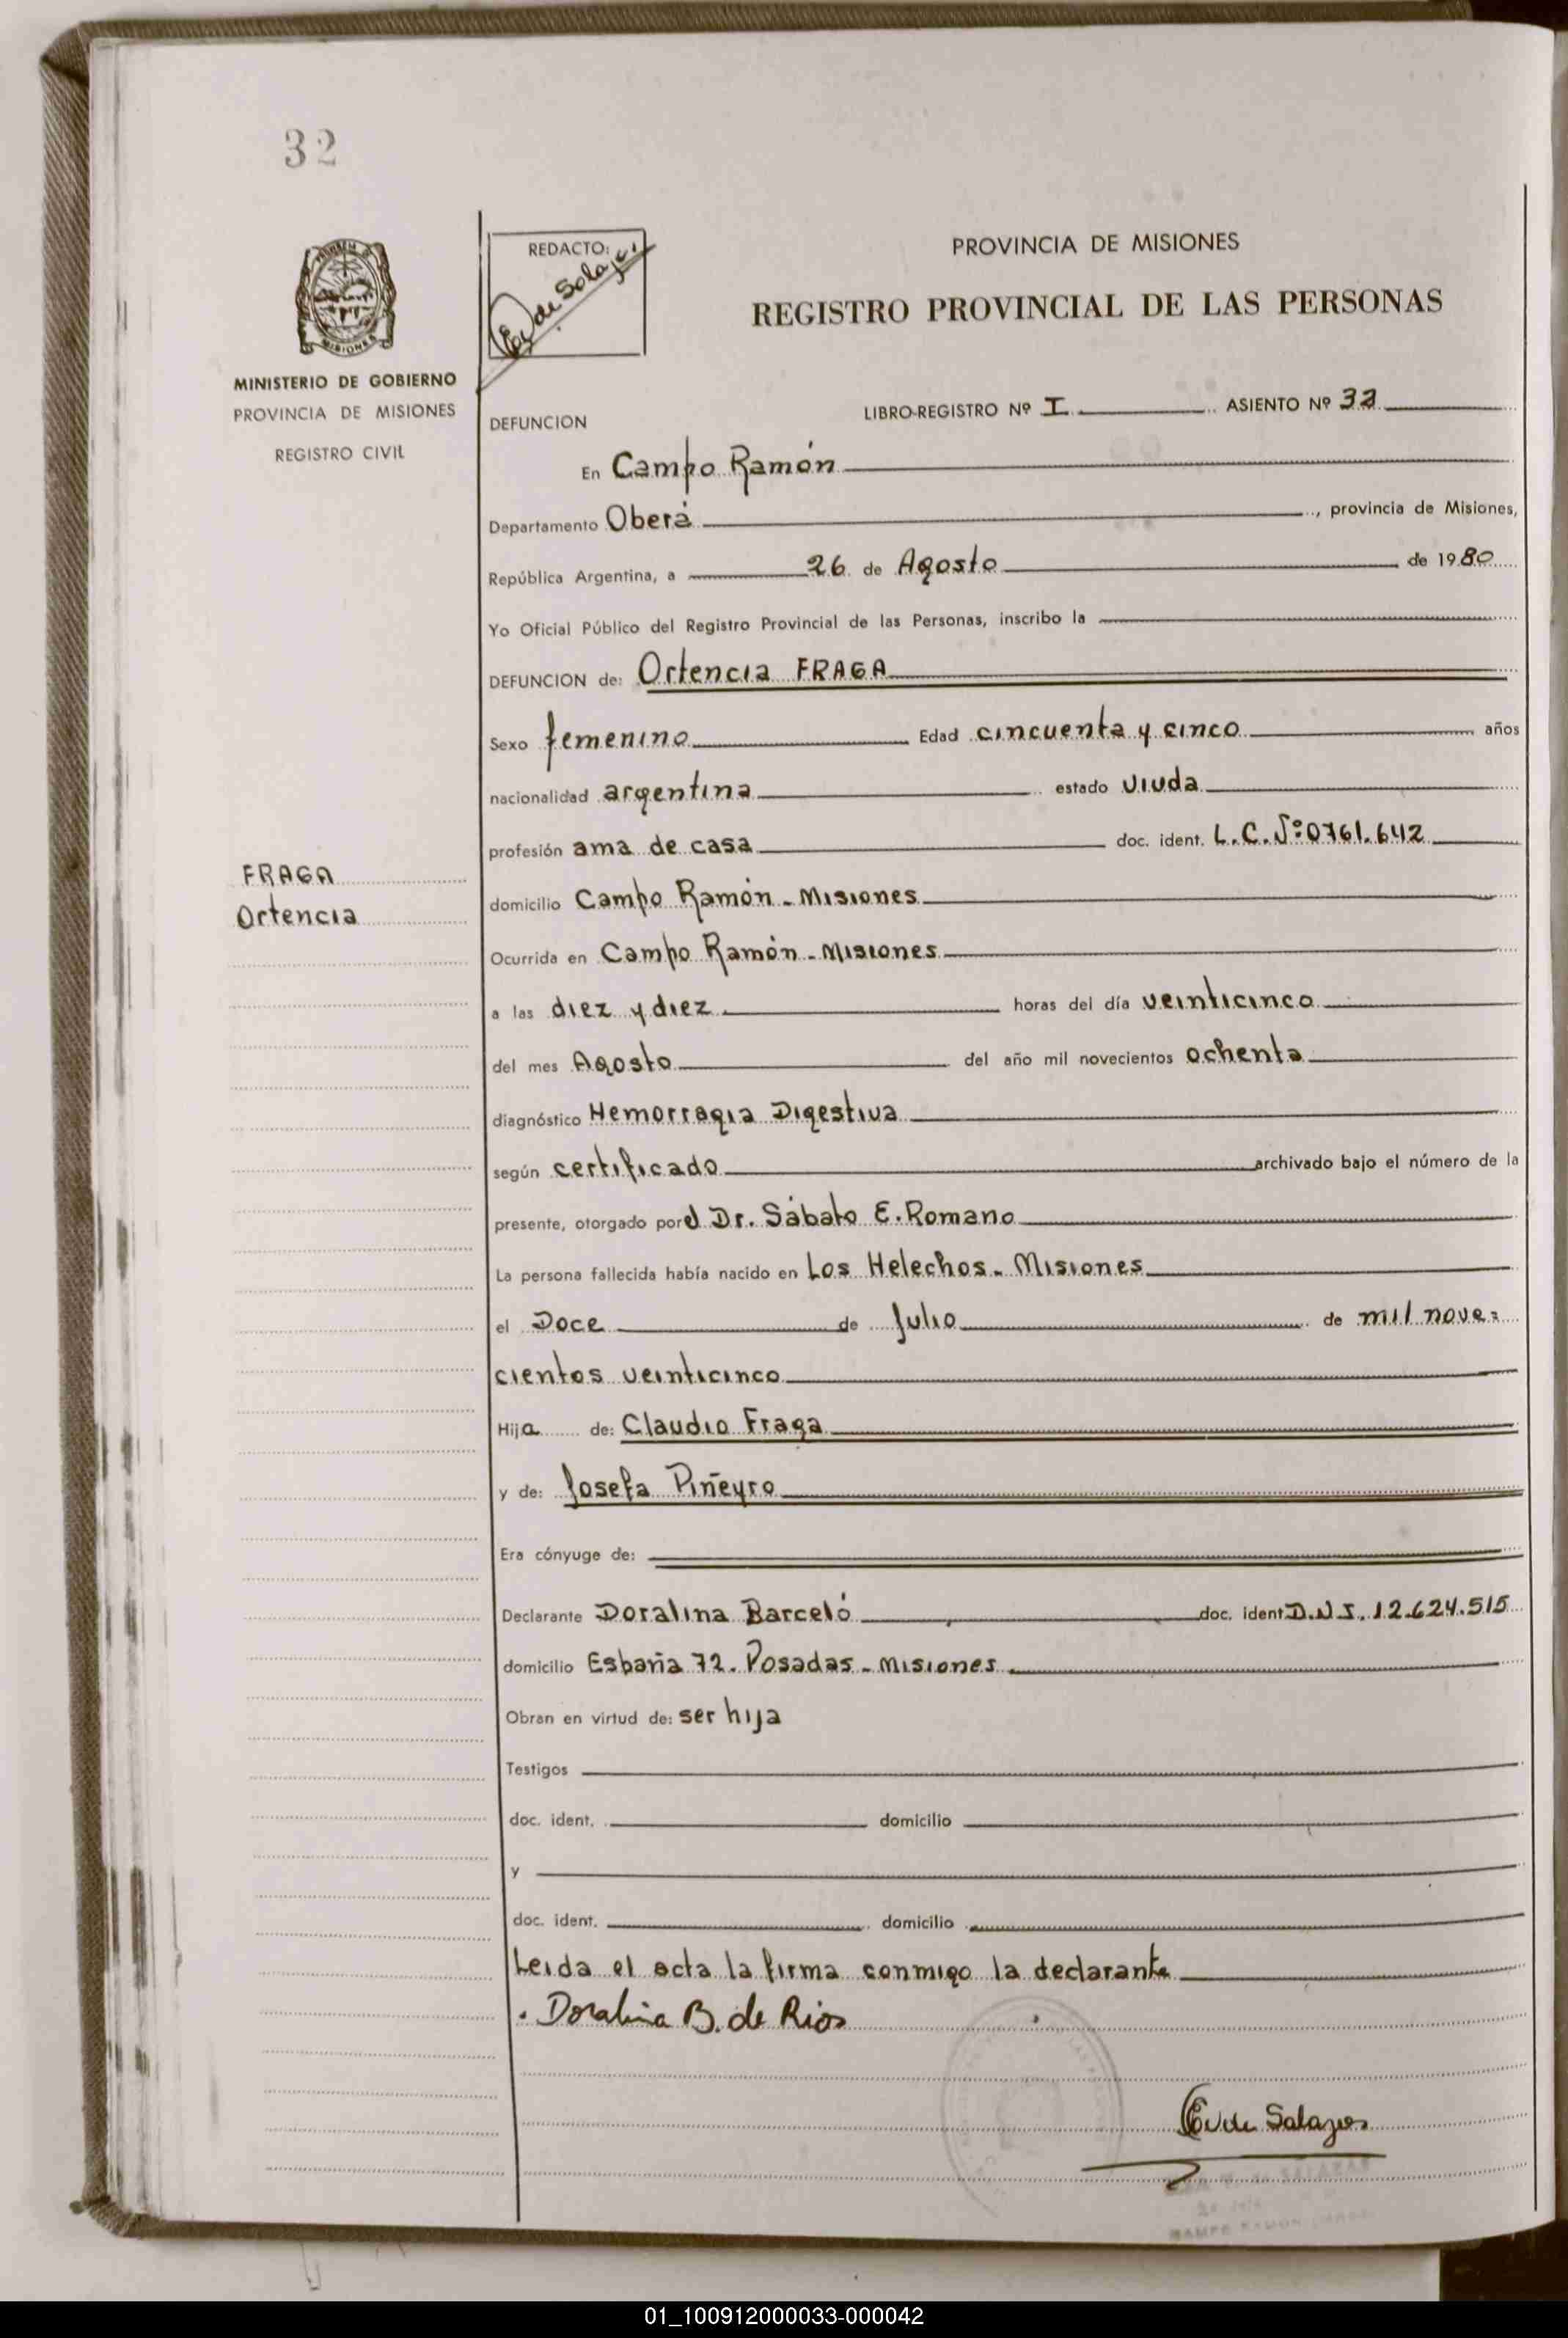 32
MISIONES
MINISTERIO DE GOBIERNO
PROVINCIA DE MISIONES
REGISTRO CIVIL
FRAGA
Ortencia
REDACTO:
PROVINCIA DE MISIONES
REGISTRO PROVINCIAL DE LAS PERSONAS
DEFUNCION LIBRO-REGISTRO Nº I ASIENTO Nº 32
En Campo Ramón
Departamento Oberá, provincia de Misiones,
República Argentina, a 26 de Agosto de 1980
Yo Oficial Público del Registro Provincial de las Personas, inscribo la
DEFUNCION de: Ortencia FRAGA
Sexo femenino Edad cincuenta y cinco años
nacionalidad argentina estado viuda
profesión ama de casa doc. ident. L.C. Nº 0761.642
domicilio Campo Ramón - Misiones
Ocurrida en Campo Ramón - Misiones
a las diez y diez horas del día veinticinco
del mes Agosto del año mil novecientos ochenta
diagnóstico Hemorragia Digestiva
según certificado archivado bajo el número de la
presente, otorgado por el Dr. Sábato E. Romano
La persona fallecida había nacido en Los Helechos - Misiones
el Doce de Julio de mil nove=
cientos veinticinco
Hija de: Claudio Fraga
y de: Josefa Piñeyro
Era cónyuge de:
Declarante Doralina Barceló doc. ident D.N.I. 12.624.515
domicilio España 72. Posadas - Misiones
Obran en virtud de: ser hija
Testigos
doc. ident. domicilio
y
doc. ident. domicilio
Leida el acta la firma conmigo la declarante
Doralina B. de Rios
01_100912000033-000042